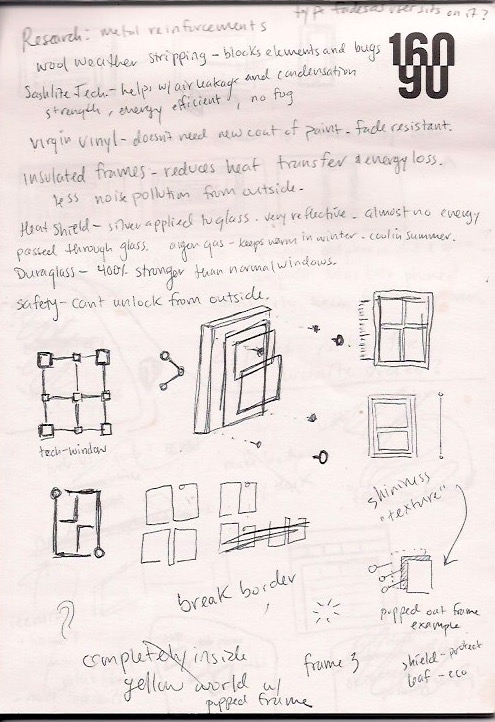 type fades as user sits on it?
Research: metal reinforcements
160
90
wool weather stripping - blocks elements and bugs
Sashlite Tech - helps w/ air leakage and condensation
strength, energy efficient, no fog
virgin vinyl - doesn't need new coat of paint - fade resistant.
insulated frames - reduces heat transfer & energy loss.
less noise pollution from outside -
Heat shield - silver applied to glass. very reflective - almost no energy
passed through glass. argon gas - keeps warm in winter - cool in summer.
Duraglass - 400% stronger than normal windows.
safety - can't unlock from outside.
tech-window
shininess
"texture"
break border
popped out frame
example
?
completely inside
yellow world w/
popped frame
frame 3
shield - protect
leaf - eco